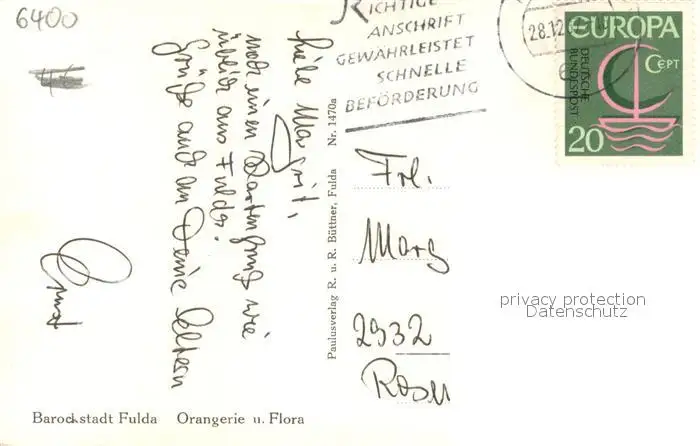 6400
RICHTIGE
ANSCHRIFT
GEWÄHRLEISTET
SCHNELLE
BEFÖRDERUNG
28.12
EUROPA
CEPT
DEUTSCHE
BUNDESPOST
20
Liebe Margrit,
noch einen Kartengruß wie
üblich aus Fulda.
Grüße auch an Deine Eltern
Ernst
Paulusverlag R. u. R. Büttner, Fulda Nr. 1470a
Frl.
Marg
2932
privacy protection
Datenschutz
Barockstadt Fulda Orangerie u. Flora